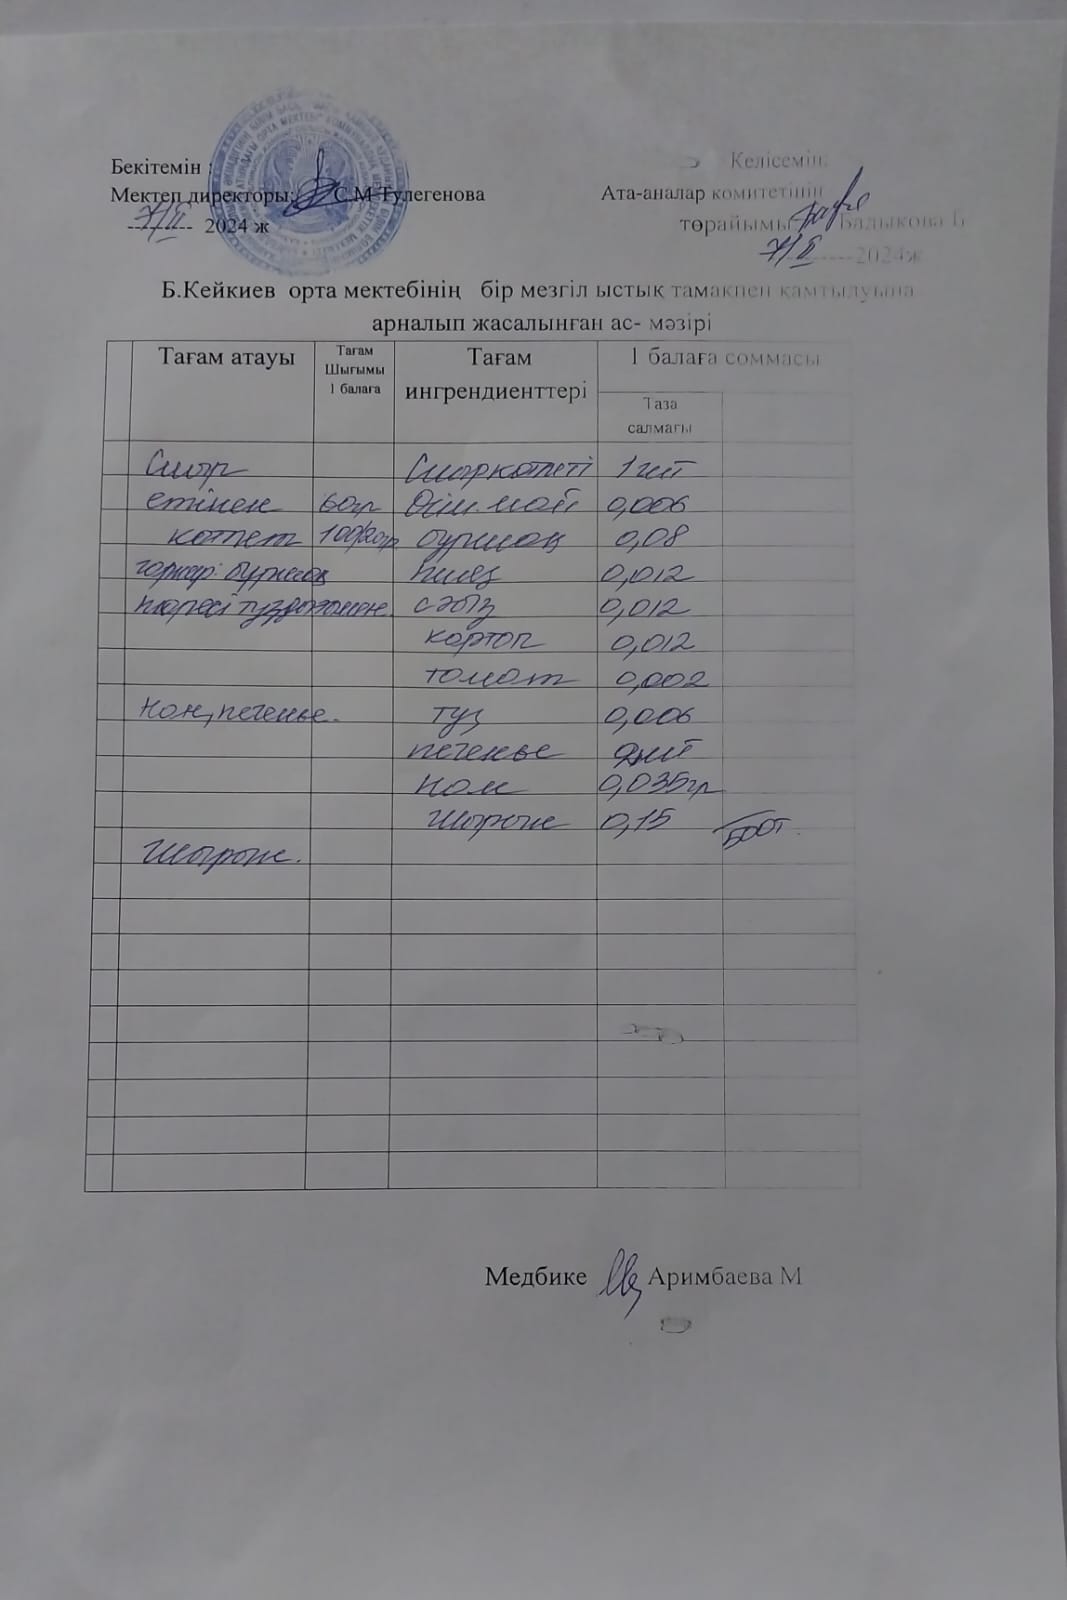 Бекітемін :
Келісемін:
Мектеп директоры: С.М Тулегенова
Ата-аналар комитетінің
7/II 2024 ж
төрайымы Бадыкова Б
7/II 2024ж
Б.Кейкиев орта мектебінің бір мезгіл ыстық тамақпен қамтылуына
арналып жасалынған ас- мәзірі
Тағам атауы
Тағам
Шығымы
1 балаға
Тағам
ингрендиенттері
1 балаға соммасы
Таза
салмағы
Сиыр Сиыр котлеті 1 шт
етінен 60гр Өсім. май 0,006
котлет 100/20гр бұршақ 0,08
гарнир: бұршақ пияз 0,012
пюресі тұздықпен. сәбіз 0,012
картоп 0,012
томат 0,002
Нан, печенье. тұз 0,006
печенье
нан 0,035гр
Шырын 0,15
Шырын.
Медбике Аримбаева М